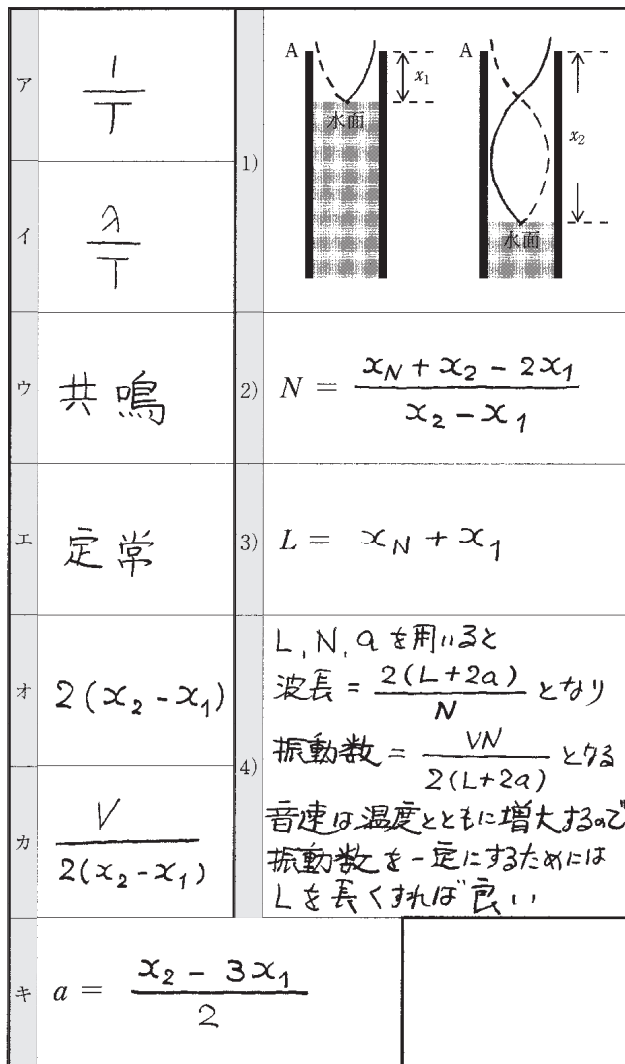 ア 1/T
イ λ/T
ウ 共鳴
エ 定常
オ 2(x₂-x₁)
カ V/2(x₂-x₁)
キ a = (x₂ - 3x₁)/2
1)
A x₁
水面
A x₂
水面
2) N = (x_N + x₂ - 2x₁)/(x₂ - x₁)
3) L = x_N + x₁
4)
L, N, a を用いると
波長 = 2(L+2a)/N となり
振動数 = VN/2(L+2a) となる
音速は温度とともに増大するので
振動数を一定にするためには
Lを長くすれば良い